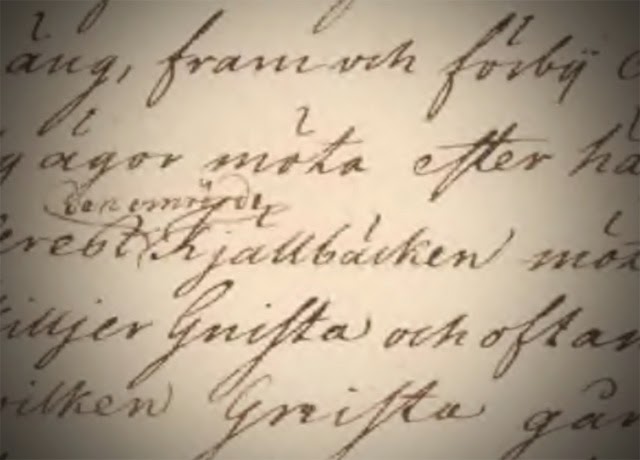 äng, fram och förbÿ
ägor möta efter hä
den omrörde
erebt Kjällbäcken möt
killjer Gnista och oftan
vilken Gnista går